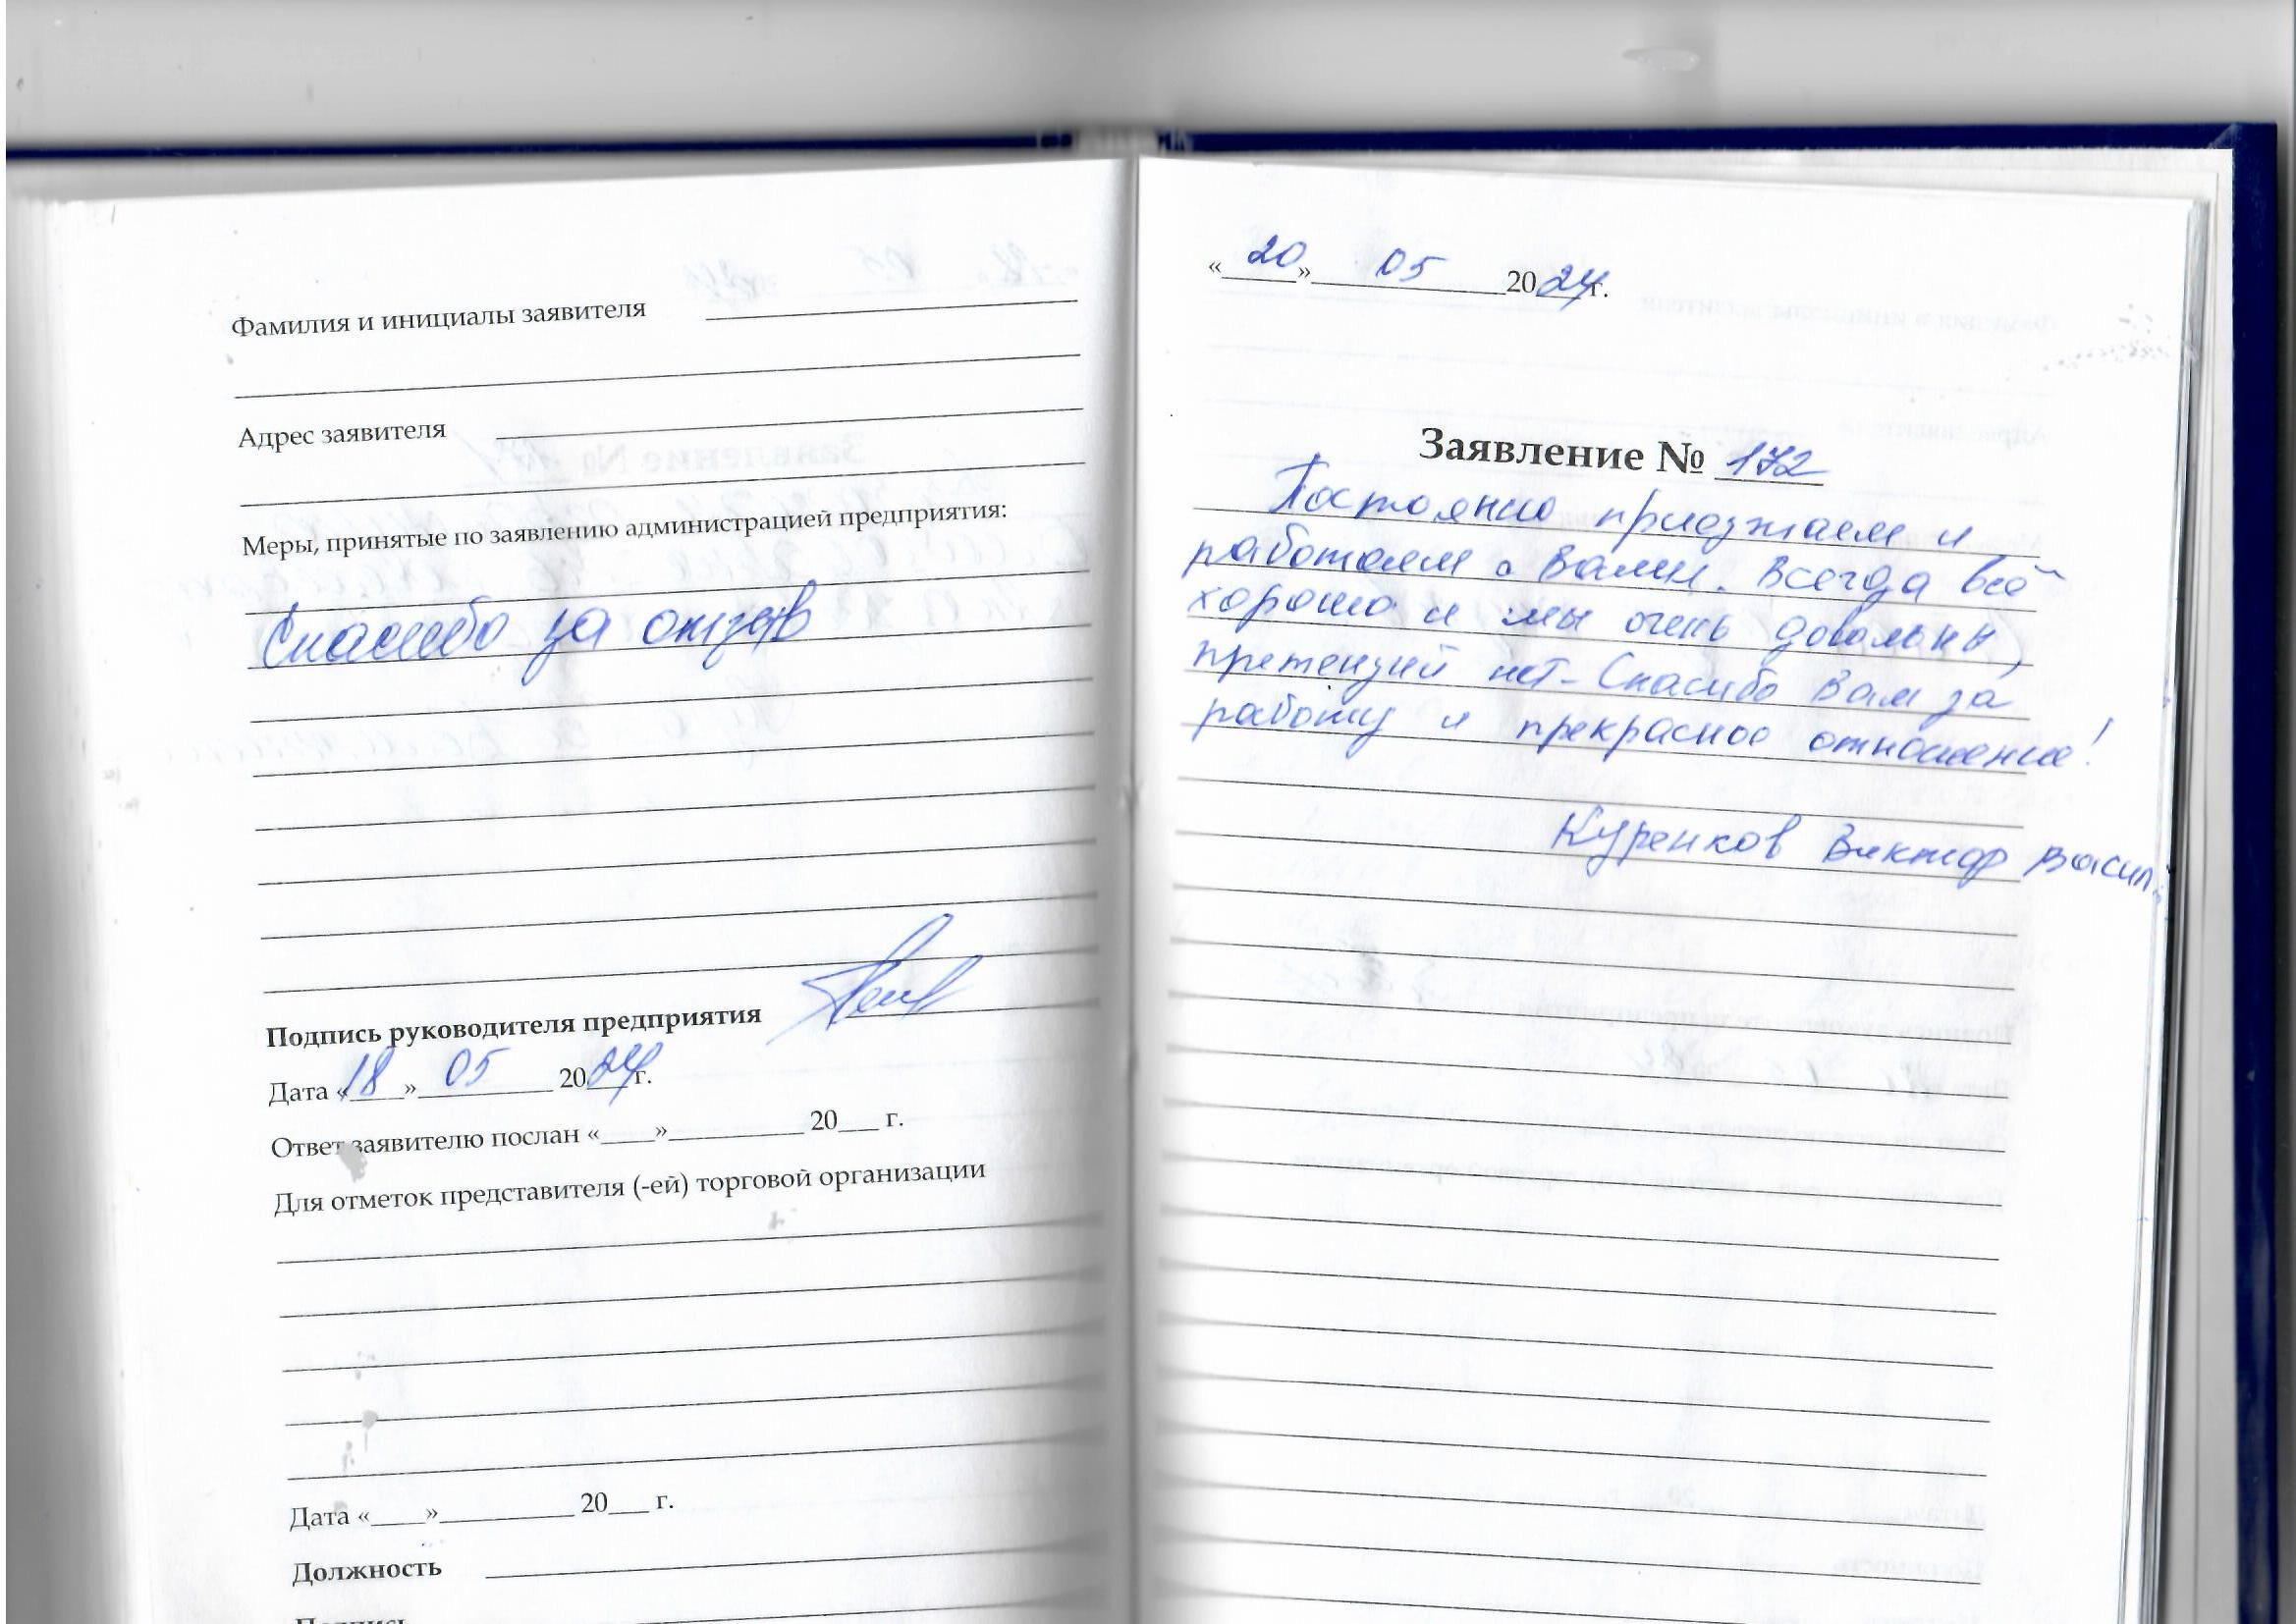 Фамилия и инициалы заявителя
Адрес заявителя
Меры, принятые по заявлению администрацией предприятия:
Спасибо за отзыв
Подпись руководителя предприятия
Дата «18» 05 2024 г.
Ответ заявителю послан «____»__________ 20___ г.
Для отметок представителя (-ей) торговой организации
Дата «____»__________ 20___ г.
Должность
Подпись
«20» 05 2024 г.
Заявление № 172
Постоянно приезжаем и
работаем с Вами. Всегда всё
хорошо и мы очень довольны,
претензий нет - Спасибо Вам за
работу и прекрасное отношение!
Куренков Виктор Васил.